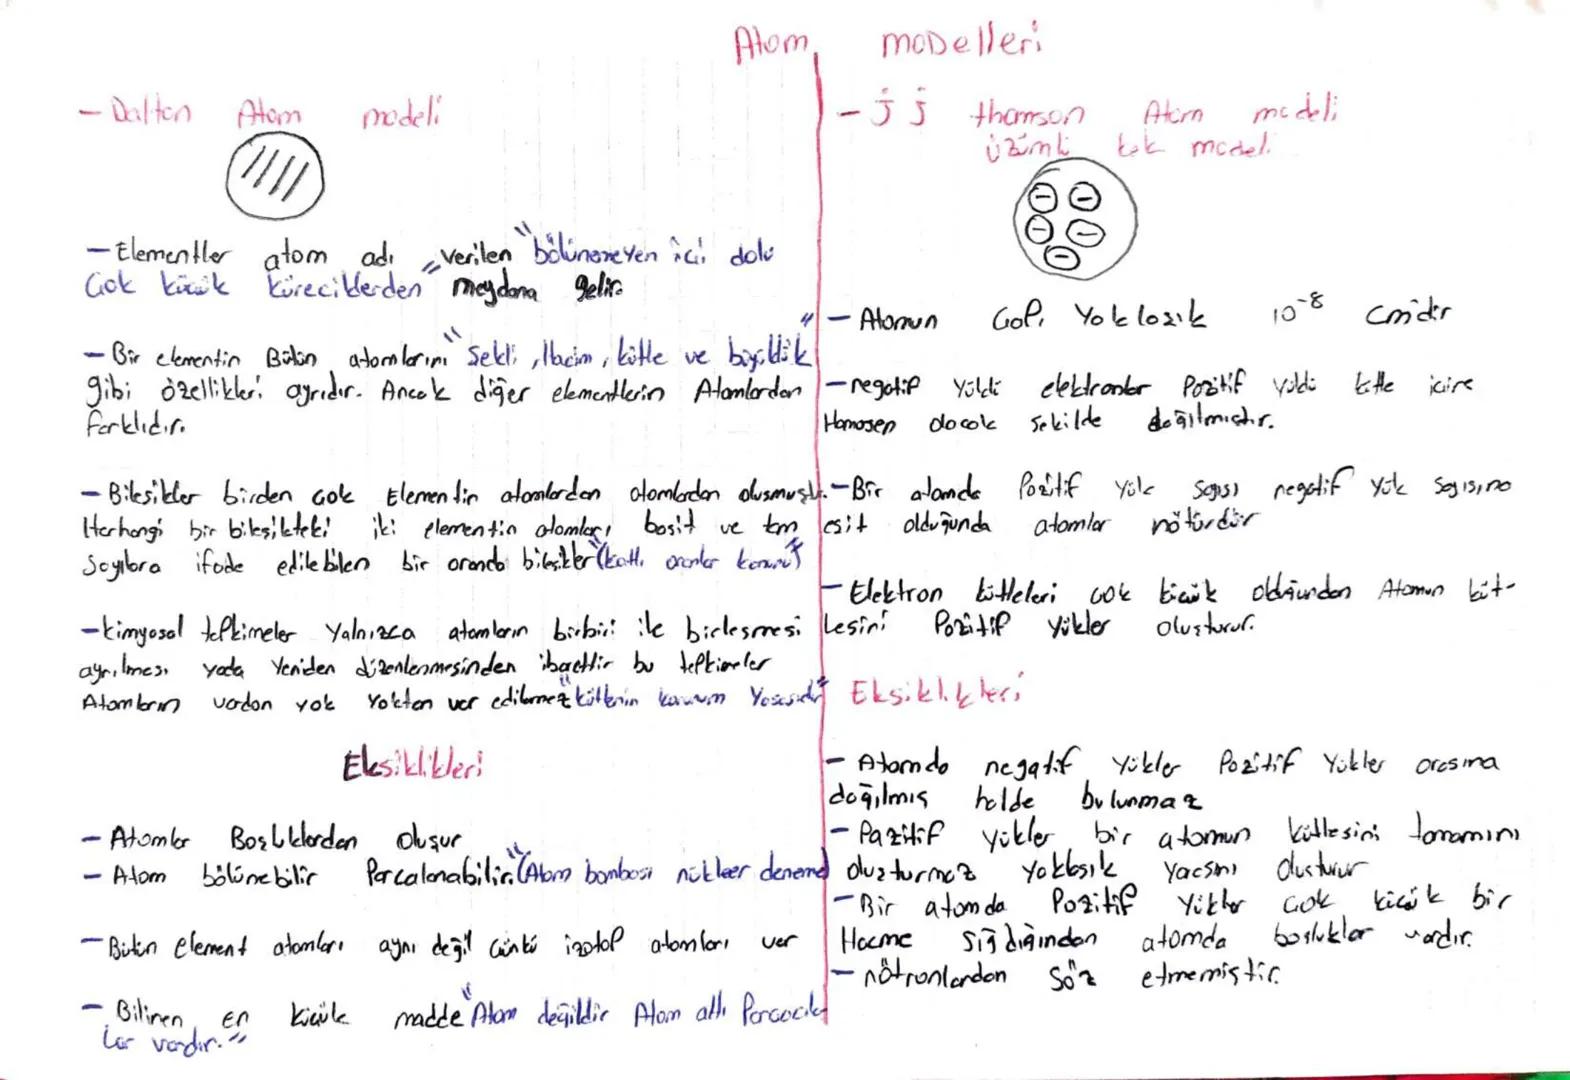 Atom moDelleri
- Dalton Atom modeli
- Elementler atom adı verilen "bölünemeyen içi dolu
Çok küçük küreciklerden" meydana gelir.
- Bir elementin Bütün atomlarını "Şekli, Hacim, kütle ve büyüklük"
gibi özellikleri aynıdır. Ancak diğer elementlerin Atomlardan
farklıdır.
- Bileşikler birden çok Elementin atomlardan atomlardan oluşmuştur.
Herhangi bir bileşikteki iki elementin atomları basit ve tam
Sayılara ifade edilebilen bir oranda bileşikler "(katlı oranlar kanunu)"
- kimyasal tepkimeler Yalnızca atomların birbiri ile birleşmesi
ayrılması yada Yeniden düzenlenmesinden ibarettir bu tepkimeler
Atomların vardan yok Yoktan var edilemez "kütlenin korunum Yasasıdır"
Eksiklikleri
- Atomlar Boşluklardan Oluşur
- Atom bölünebilir Parçalanabilir. "(Atom bombası nükleer deneme)
- Bütün element atomları aynı değil Çünkü izotop atomları var
- Bilinen En küçük madde "Atom değildir Atom altı Parçacık
lar vardır."
- j j thomson Atom modeli
üzümlü kek model.
- Atomun Çapı Yaklaşık 10⁻⁸ cm'dir
- negatif Yüklü elektronlar Pozitif yüklü kütle içine
Homojen olacak şekilde dağılmıştır.
- Bir atomda Pozitif Yük Sayısı negatif Yük Sayısına
eşit olduğunda atomlar nötürdür
- Elektron kütleleri çok küçük olduğundan Atomun küt-
lesini Pozitif Yükler Oluşturur.
Eksiklikleri
- Atomda negatif Yükler Pozitif Yükler arasına
dağılmış halde bulunmaz
- Pazitif yükler bir atomun kütlesini tamamını
oluşturmaz Yaklaşık Yarısını Oluşturur
- Bir atomda Pozitif Yükler Çok küçük bir
Hacme Sığdığından atomda boşluklar vardır.
- nötronlardan Söz etmemiştir.